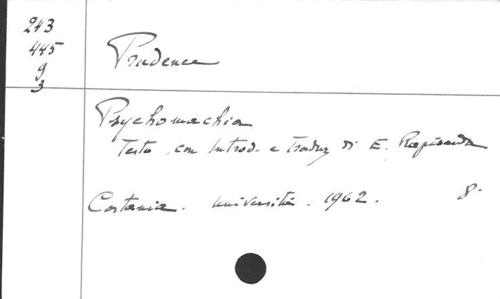 243
445
g
3
Prudence
Psychomachia
Testo con Introd. e traduz di E. Rapisarda
Catania. Università. 1962. 8°